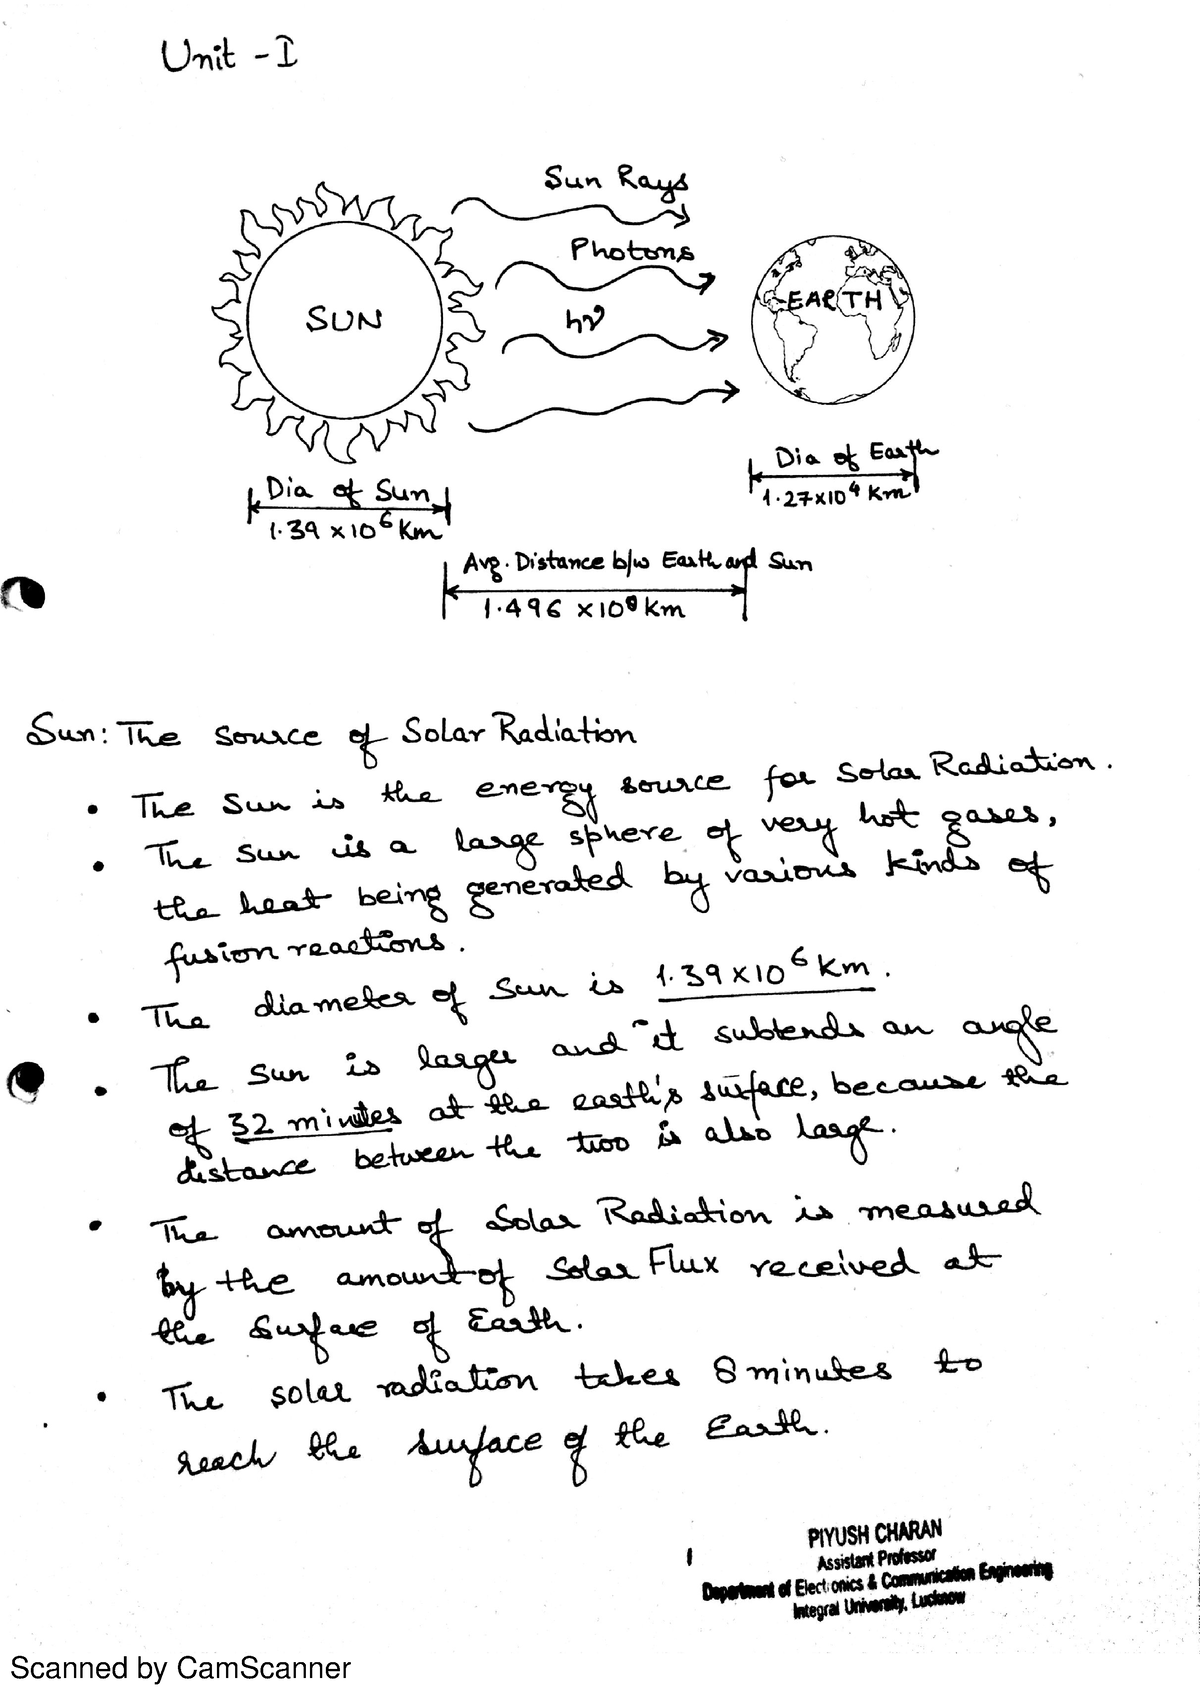 Unit - I
Sun Rays
Photons
hν
SUN
EARTH
Dia of Earth
1.27×10⁴ Km
Dia of Sun
1.39 ×10⁶ Km
Avg. Distance b/w Earth and Sun
1.496 ×10⁸ Km
Sun: The source of Solar Radiation
• The Sun is the energy source for Solar Radiation.
• The Sun is a large sphere of very hot gases,
the heat being generated by various kinds of
fusion reactions.
• The diameter of Sun is 1.39×10⁶ Km.
• The Sun is larger and it subtends an angle
of 32 minutes at the earth's surface, because the
distance between the two is also large.
• The amount of Solar Radiation is measured
by the amount of Solar Flux received at
the Surface of Earth.
• The solar radiation takes 8 minutes to
reach the surface of the Earth.
1
PIYUSH CHARAN
Assistant Professor
Department of Electronics & Communication Engineering
Integral University, Lucknow
Scanned by CamScanner